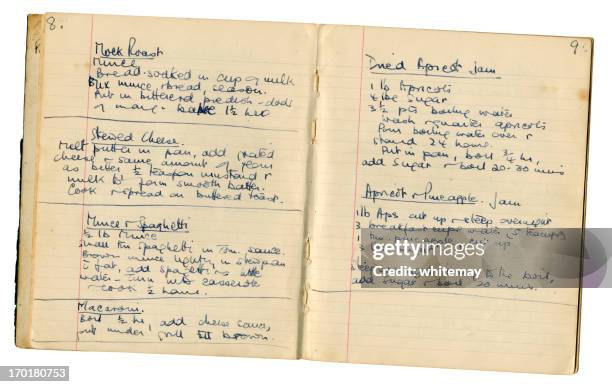 8.
Mock Roast
Mince
Bread-soaked in cup of milk
Mix mince, bread, season.
Put in buttered piedish - dods
of marg - bake 1½ hrs
Stewed Cheese.
Melt butter in pan, add grated
cheese & same amount of
as butter ½ teaspoon mustard &
milk to form smooth batter.
Cook & spread on buttered toast.
Mince & Spaghetti
½ lb Mince
Small tin spaghetti in Tom. sauce.
Brown mince lightly in stewpan
fat, add spaghetti & little
water. Turn into casserole
& cook ½ hour.
Macaroni.
Boil ½ hr, add cheese sauce,
put under grill till brown.
9.
Dried Apricot Jam
1 lb Apricots
4 lbs sugar
3½ pts boiling water
Wash & quarter apricots
Pour boiling water over &
stand 24 hours.
Put in pan, boil ¾ hr,
add sugar & boil 20-30 mins
Apricot & Pineapple Jam
1 lb Aps cut up & steep overnight
3 breakfast cups water
1 up
to the boil,
add sugar & boil 20 mins.
iStock
Credit: whitemay
170180753